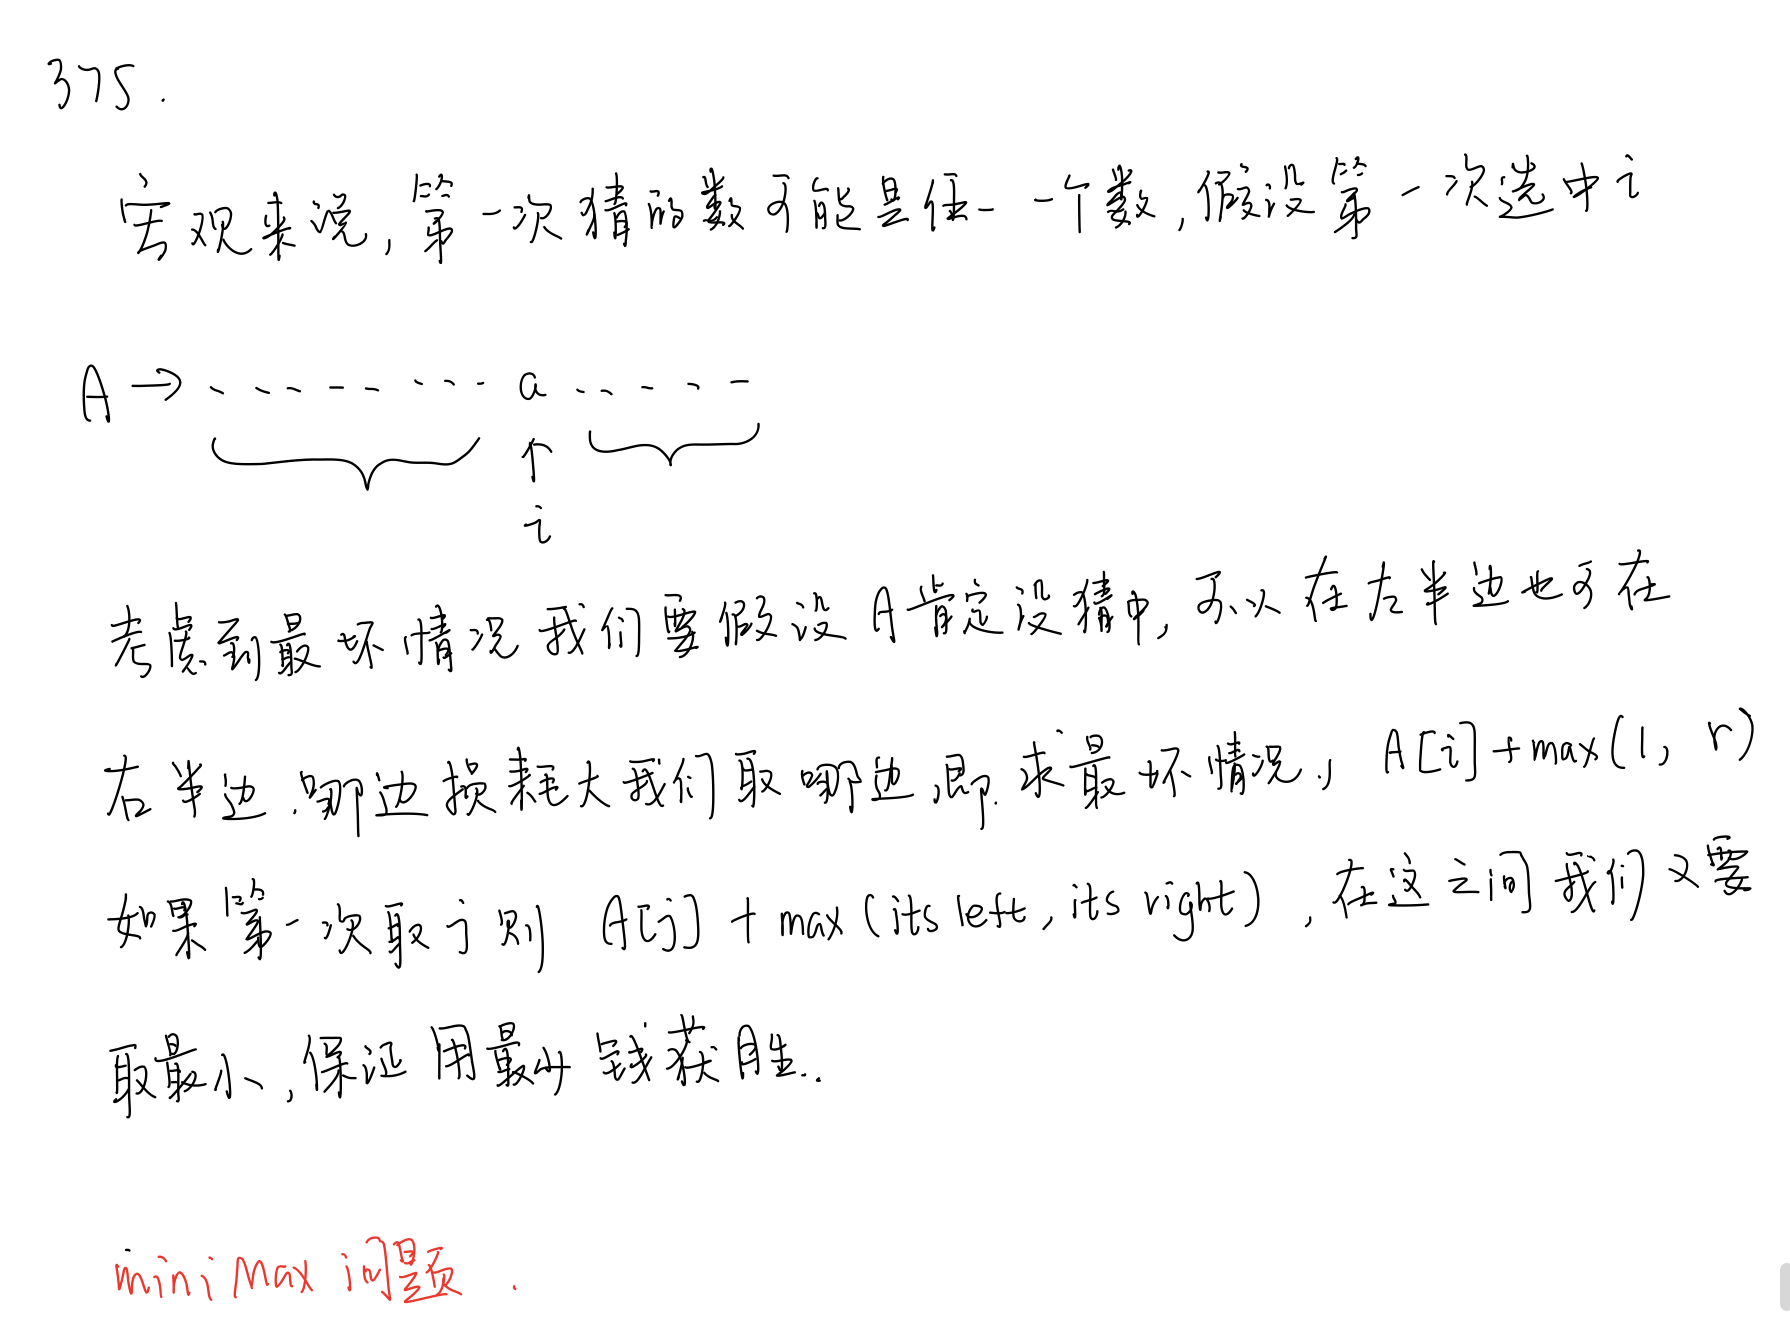 375.
宏观来说,第一次猜的数可能是任一一个数,假设第一次选中i
A → a
i
考虑到最坏情况我们要假设A肯定没猜中,可以在左半边也可在
右半边.哪边损耗大我们取哪边,即求最坏情况, A[i]+max(l, r)
如果第一次取j则 A[j] + max(its left, its right), 在这之间我们又要
取最小,保证用最少钱获胜.
miniMax 问题.